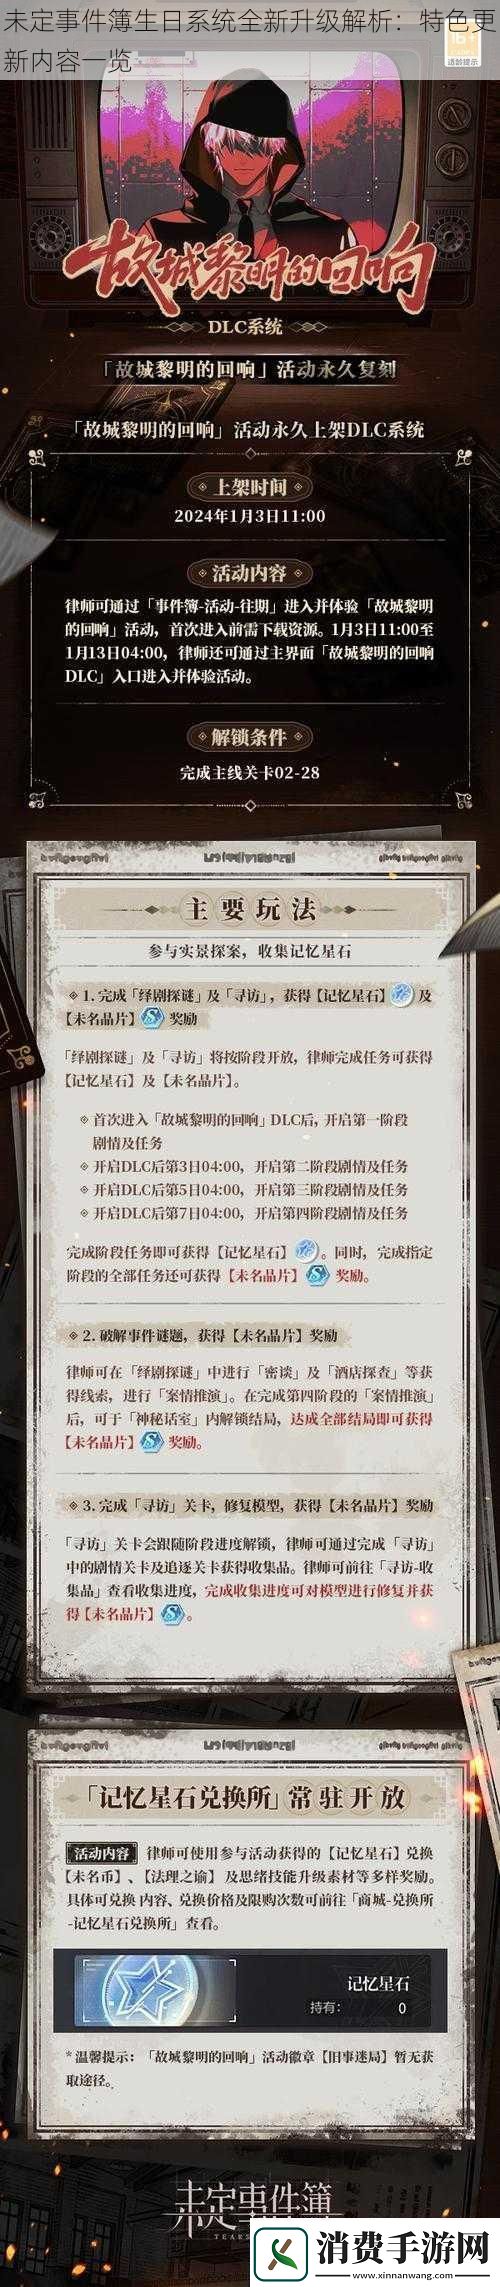 未定事件簿生日系统全新升级解析：特色更
新内容一览
16+
适龄提示
故城黎明的回响
DLC系统
「故城黎明的回响」活动永久复刻
「故城黎明的回响」活动永久上架DLC系统
上架时间
2024年1月3日11:00
活动内容
律师可通过「事件簿-活动-往期」进入并体验「故城黎明
的回响」活动，首次进入前需下载资源。1月3日11:00至
1月13日04:00，律师还可通过主界面「故城黎明的回响
DLC」入口进入并体验活动。
解锁条件
完成主线关卡02-28
主要玩法
参与实景探案，收集记忆星石
1. 完成「绎剧探谜」及「寻访」，获得【记忆星石】及
【未名晶片】奖励
「绎剧探谜」及「寻访」将按阶段开放，律师完成任务可获得
【记忆星石】及【未名晶片】。
首次进入「故城黎明的回响」DLC后，开启第一阶段
剧情及任务
开启DLC后第3日04:00，开启第二阶段剧情及任务
开启DLC后第5日04:00，开启第三阶段剧情及任务
开启DLC后第7日04:00，开启第四阶段剧情及任务
完成阶段任务即可获得【记忆星石】。同时，完成指定
阶段的全部任务还可获得【未名晶片】奖励。
2. 破解事件谜题，获得【未名晶片】奖励
律师可在「绎剧探谜」中进行「密谈」及「酒店探查」等获
得线索，进行「案情推演」。在完成第四阶段的「案情推演」
后，可于「神秘话室」内解锁结局，达成全部结局即可获得
【未名晶片】奖励。
3. 完成「寻访」关卡，修复模型，获得【未名晶片】奖励
「寻访」关卡会跟随阶段进度解锁，律师可通过完成「寻访」
中的剧情关卡及追逐关卡获得收集品。律师可前往「寻访-收
集品」查看收集进度，完成收集进度可对模型进行修复并获
得【未名晶片】。
「记忆星石兑换所」常驻开放
活动内容 律师可使用参与活动获得的【记忆星石】兑换
【未名币】、【法理之谕】及思绪技能升级素材等多样奖励。
具体可兑换内容、兑换价格及限购次数可前往「商城-兑换所
-记忆星石兑换所」查看。
记忆星石
持有： 0
*温馨提示：「故城黎明的回响」活动徽章【旧事迷局】暂无获
取途径。
未定事件簿
消费手游网
www.xinnanwang.com